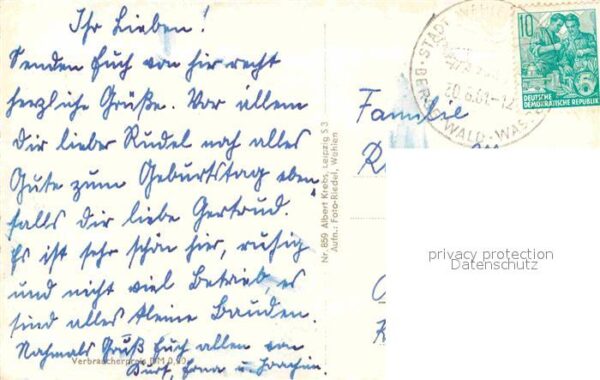 Ihr Lieben!
Senden Euch von hier recht
herzliche Grüße. Vor allem
dir lieber Rudel noch alles
Gute zum Geburtstag eben
falls dir liebe Gertrud.
Es ist sehr schön hier, ruhig
und nicht viel Betrieb, es
sind alles kleine Bauden.
Nochmals Gruß Euch allen von
Kurt, Erna u. Joachim.
Verbraucherpreis DM 0,20
Nr. 859 Albert Krebs, Leipzig S 3
Aufn.: Foto-Riedel, Wehlen
Familie
R
STADT WEHLEN
BERG WALD WASS
30.6.61.-12
10
DEUTSCHE
DEMOKRATISCHE REPUBLIK
privacy protection
Datenschutz